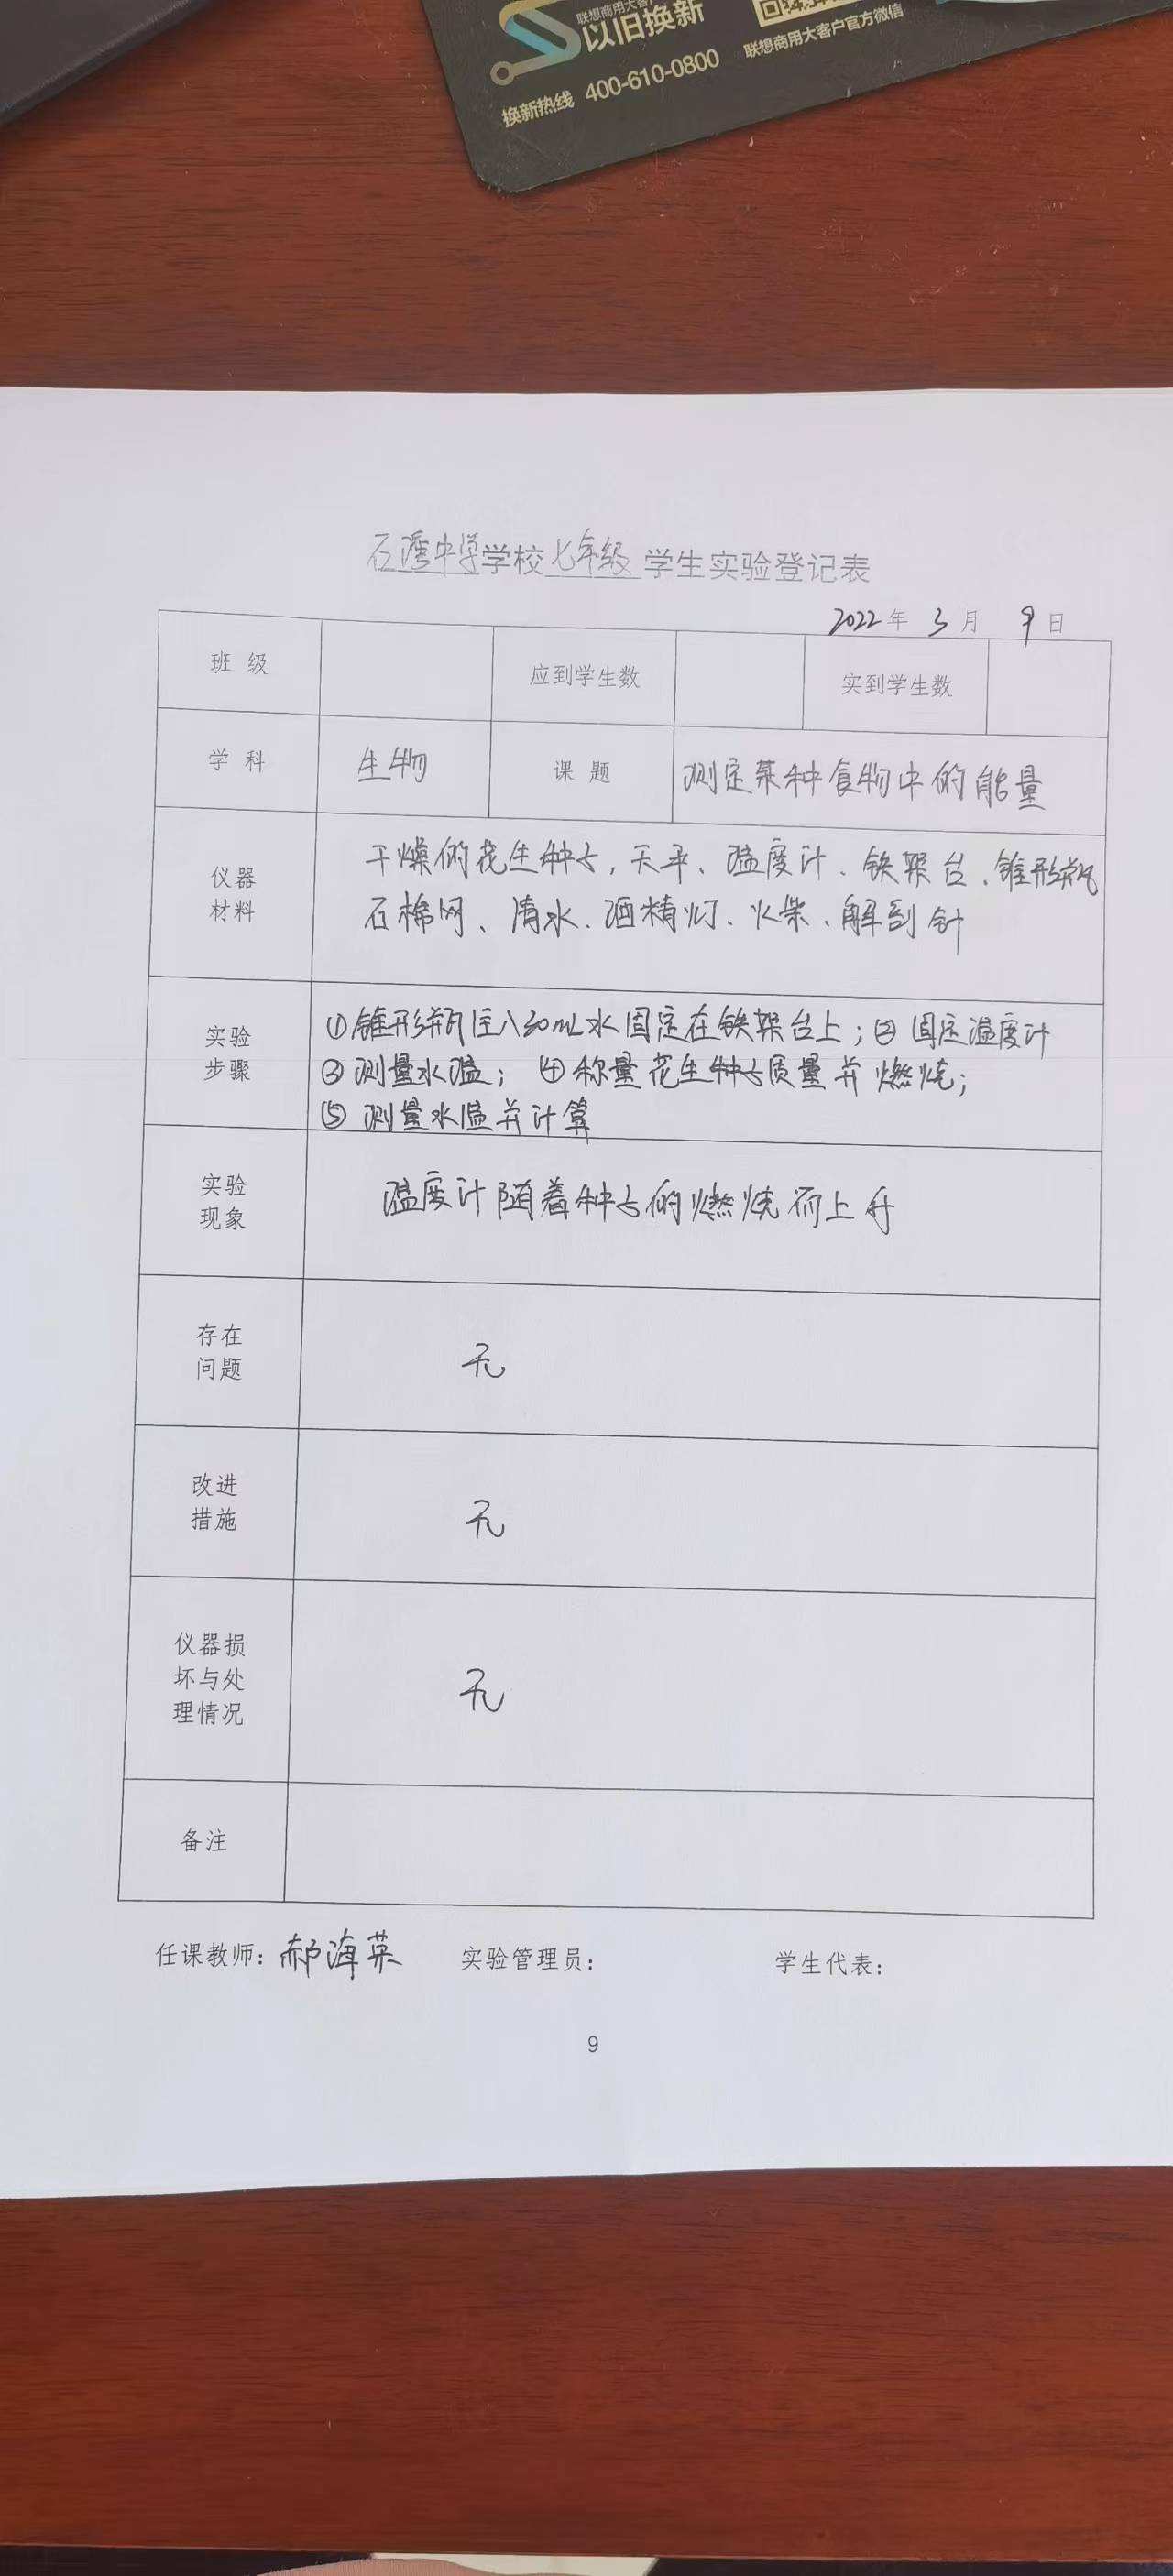 联想商用大客户
以旧换新
换新热线 400-610-0800
联想商用大客户官方微信
石湾中学学校七年级学生实验登记表
2022年 3月 9日
班 级 应到学生数 实到学生数
学 科 生物 课 题 测定某种食物中的能量
仪器
材料
干燥的花生种子,天平、温度计、铁架台、锥形瓶
石棉网、清水、酒精灯、火柴、解剖针
实验
步骤
①锥形瓶注入30mL水固定在铁架台上;②固定温度计
③测量水温; ④称量花生种子质量并燃烧;
⑤测量水温并计算
实验
现象
温度计随着种子的燃烧而上升
存在
问题
无
改进
措施
无
仪器损
坏与处
理情况
无
备注
任课教师:郝海英 实验管理员: 学生代表:
9